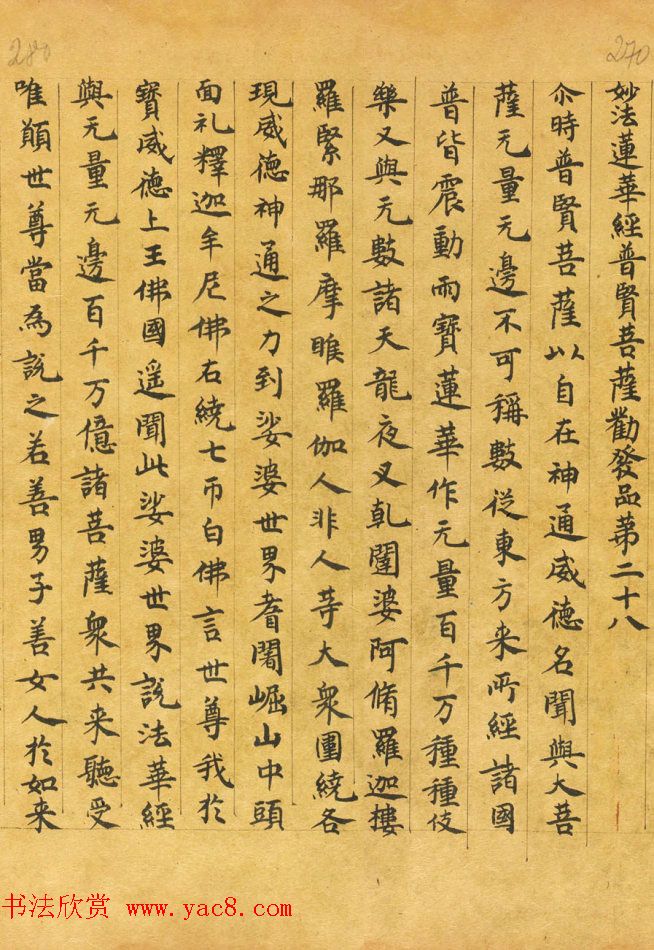 280
270
妙法蓮華經普賢菩薩勸發品苐二十八
尒時普賢菩薩以自在神通威德名聞與大菩
薩无量无邊不可稱數從東方来所經諸國
普皆震動雨寶蓮華作无量百千万種種伎
樂又與无數諸天龍夜叉乹闥婆阿脩羅迦樓
羅緊那羅摩睺羅伽人非人䓁大衆圍繞各
現威德神通之力到娑婆世界耆闍崛山中頭
面礼釋迦牟尼佛右繞七帀白佛言世尊我於
寳威德上王佛國遥聞此娑婆世界說法華經
與无量无邊百千万億諸菩薩衆共来聽受
唯願世尊當為說之若善男子善女人於如来
书法欣赏 www.yac8.com